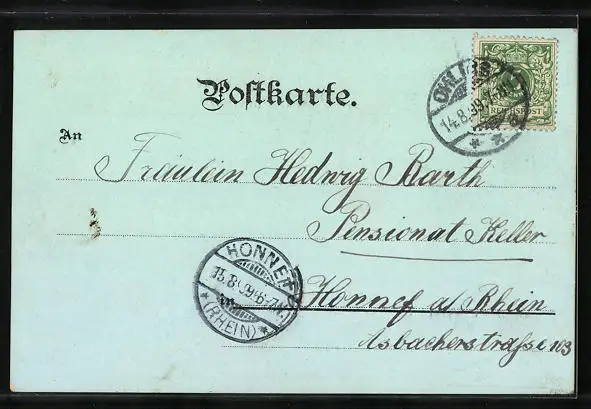 Postkarte.
An
Fräulein Hedwig Barth
Pensionat Keller
in Honnef a/ Rhein
Asbacherstraße 103
14.8.99
REICHSPOST
HONNEF
15.8.99 6-7N.
* (RHEIN) *